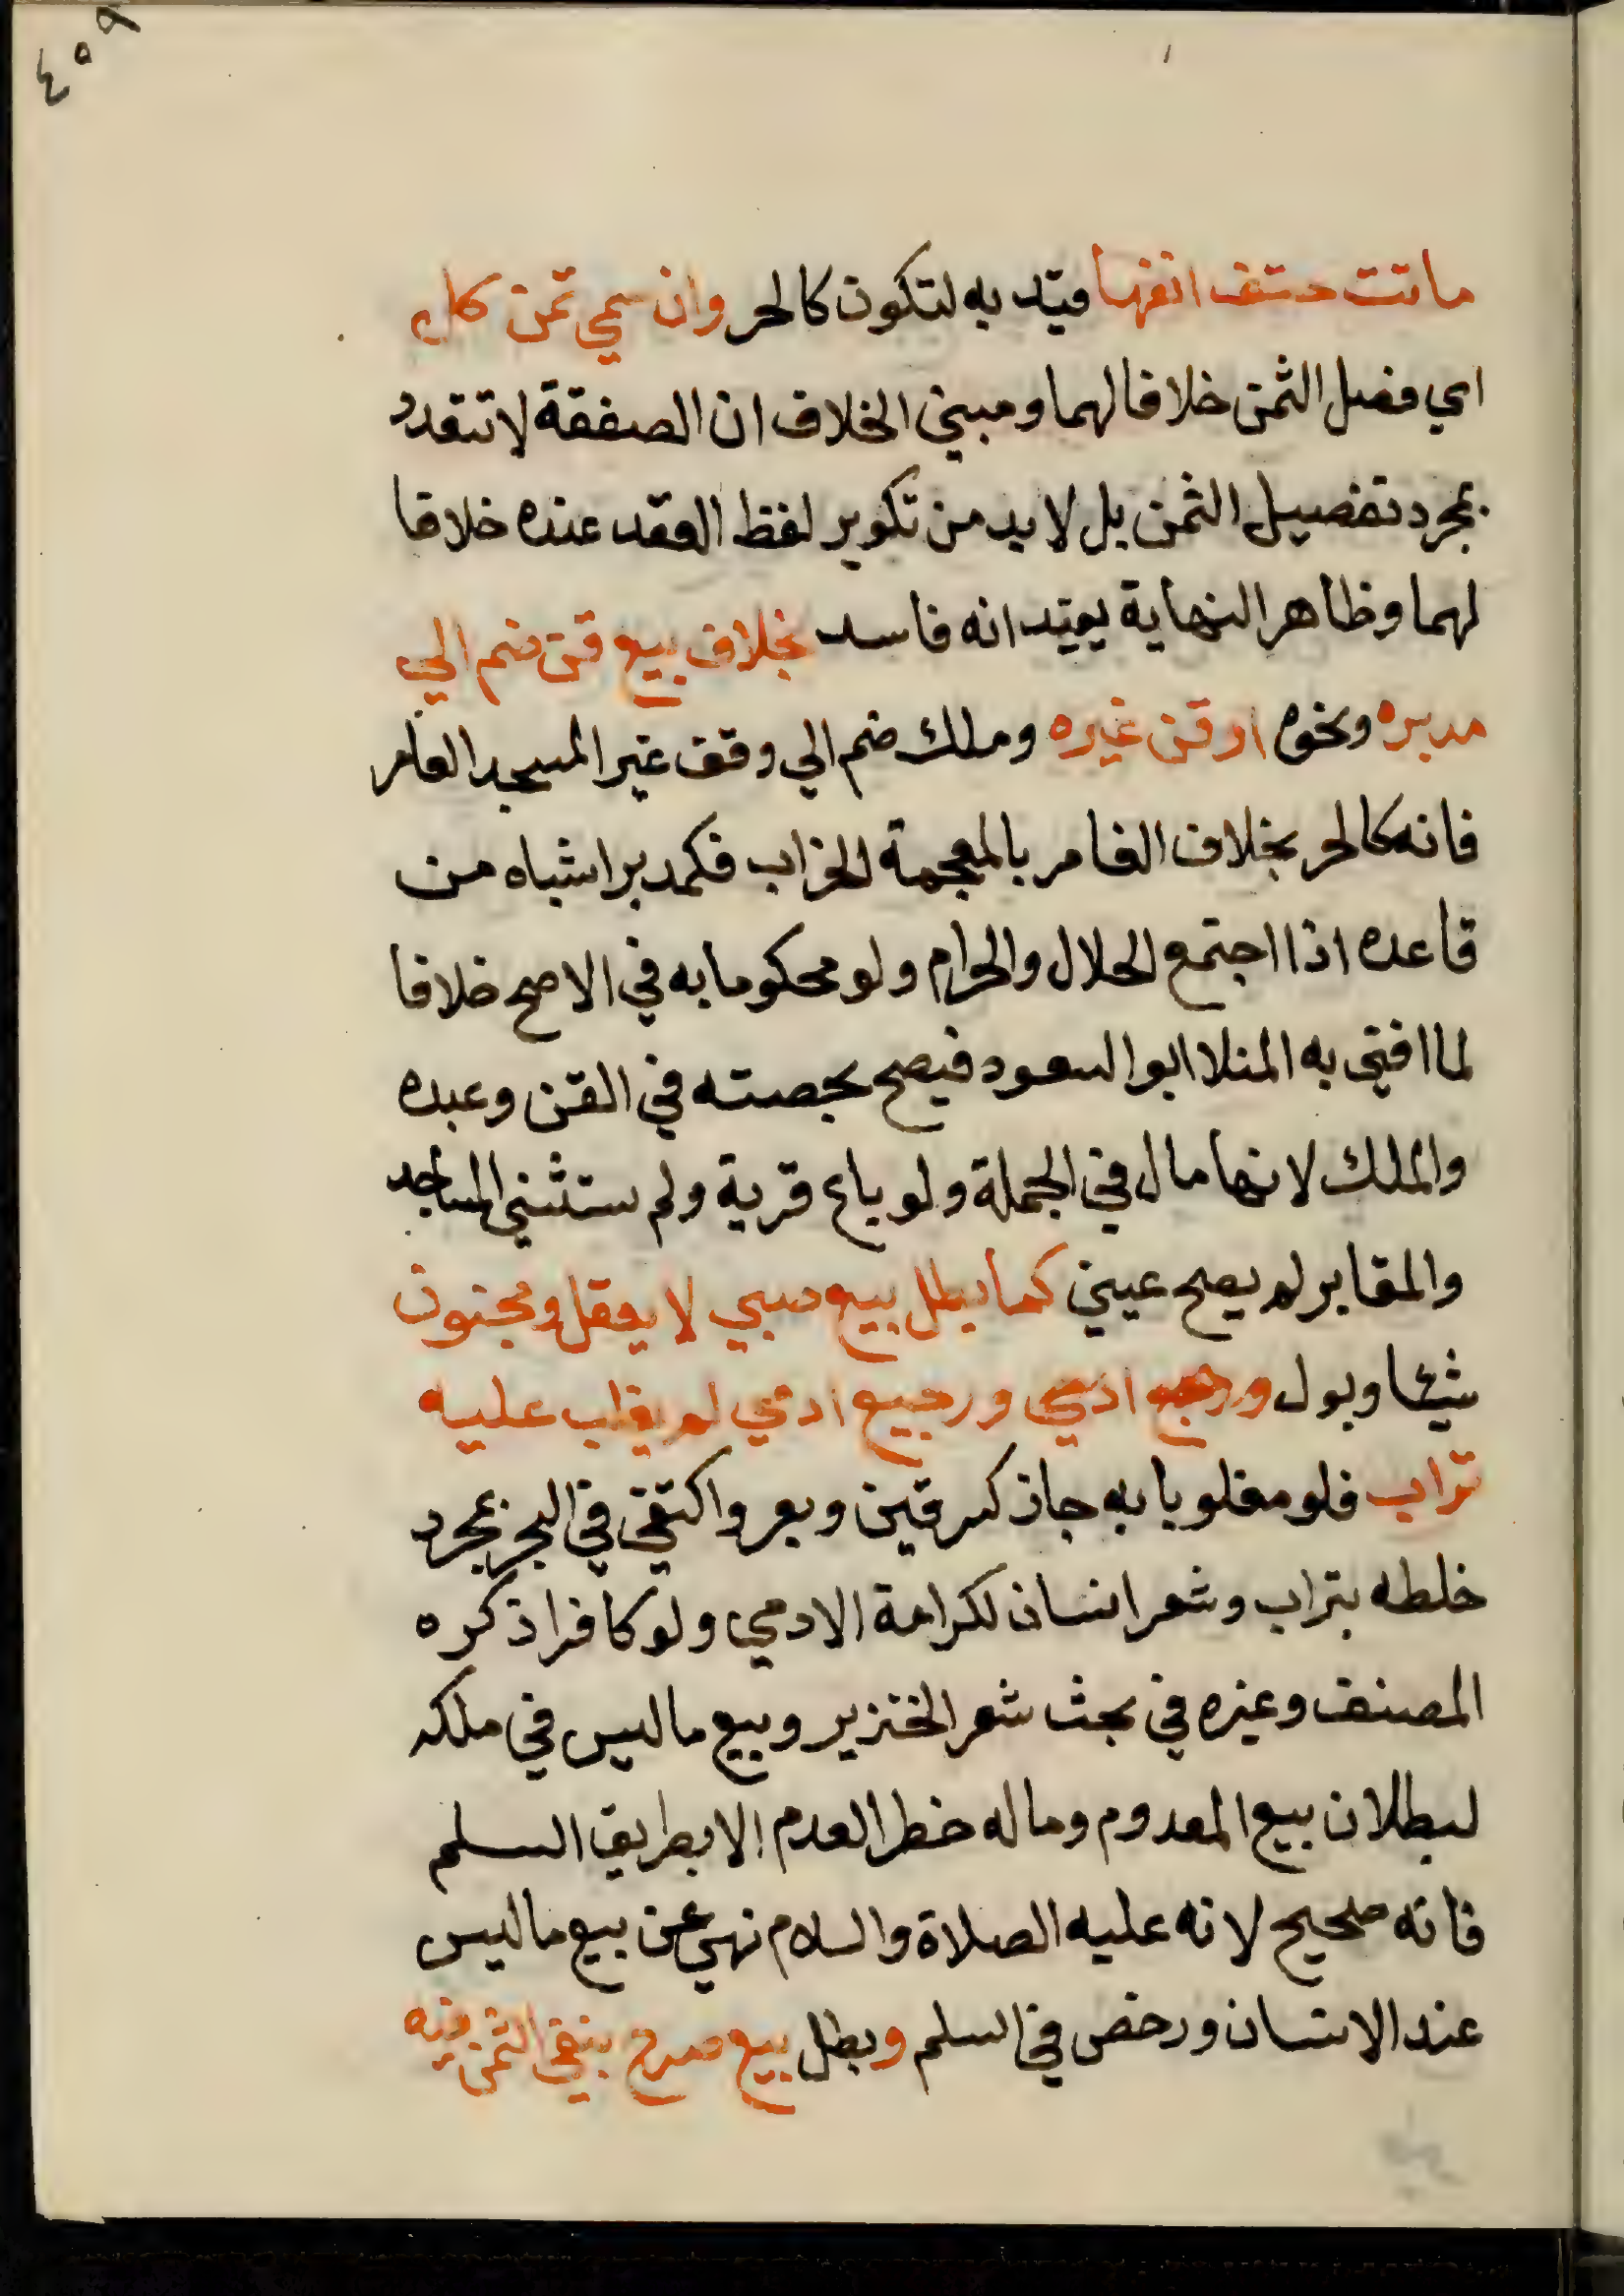 ٤٥٩
ماتت حتف انفها قيد به لتكون كالحر وان سمي ثمن كل
اي فصل الثمن خلافا لهما ومبني الخلاف ان الصفقة لا تتعدد
بمجرد تفصيل الثمن بل لا بد من تكرير لفظ العقد عنده خلافا
لهما وظاهر النهاية يفيد انه فاسد بخلاف بيع قن ضم الي
مدبره ونحوه او قن غيره وملك ضم الي وقف غير المسجد العامر
فانه كالحر بخلاف الغامر بالمعجمة الخراب فكمدبر اشباه من
قاعده اذا اجتمع الحلال والحرام ولو محكوما به في الاصح خلافا
لما افتي به المنلا ابو السعود فيصح بحصته في القن وعبده
والملك لانها مال في الجملة ولو باع قرية ولم يستثني المساجد
والمقابر لم يصح عيني كما يبطل بيع صبي لا يعقل ومجنون
شيئا وبول ورجيع ادمي ورجيع ادمي لم يغلب عليه
تراب فلو مغلوبا به جاز كسرقين وبعر واكتفي في البحر بمجرد
خلطه بتراب وشعر انسان لكرامة الادمي ولو كافرا ذكره
المصنف وغيره في بحث شعر الخنزير وبيع ما ليس في ملكه
لبطلان بيع المعدوم وماله خطر العدم الا بطريق السلم
فانه صحيح لانه عليه الصلاة والسلام نهي عن بيع ما ليس
عند الانسان ورخص في السلم وبطل بيع صرح بنفي الثمن فيه